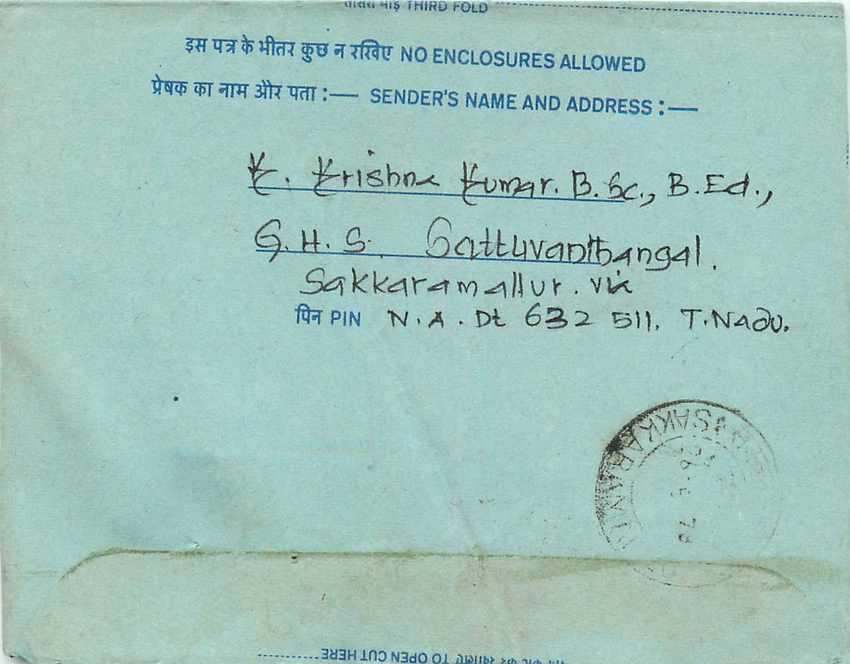 THIRD FOLD
इस पत्र के भीतर कुछ न रखिए NO ENCLOSURES ALLOWED
प्रेषक का नाम और पता :— SENDER'S NAME AND ADDRESS :—
K. Krishna Kumar. B.Sc., B.Ed.,
G.H.S. Gattuvanthangal.
Sakkaramallur. Via
पिन PIN N.A. Dt 632 511. T.Nadu.
TO OPEN CUT HERE